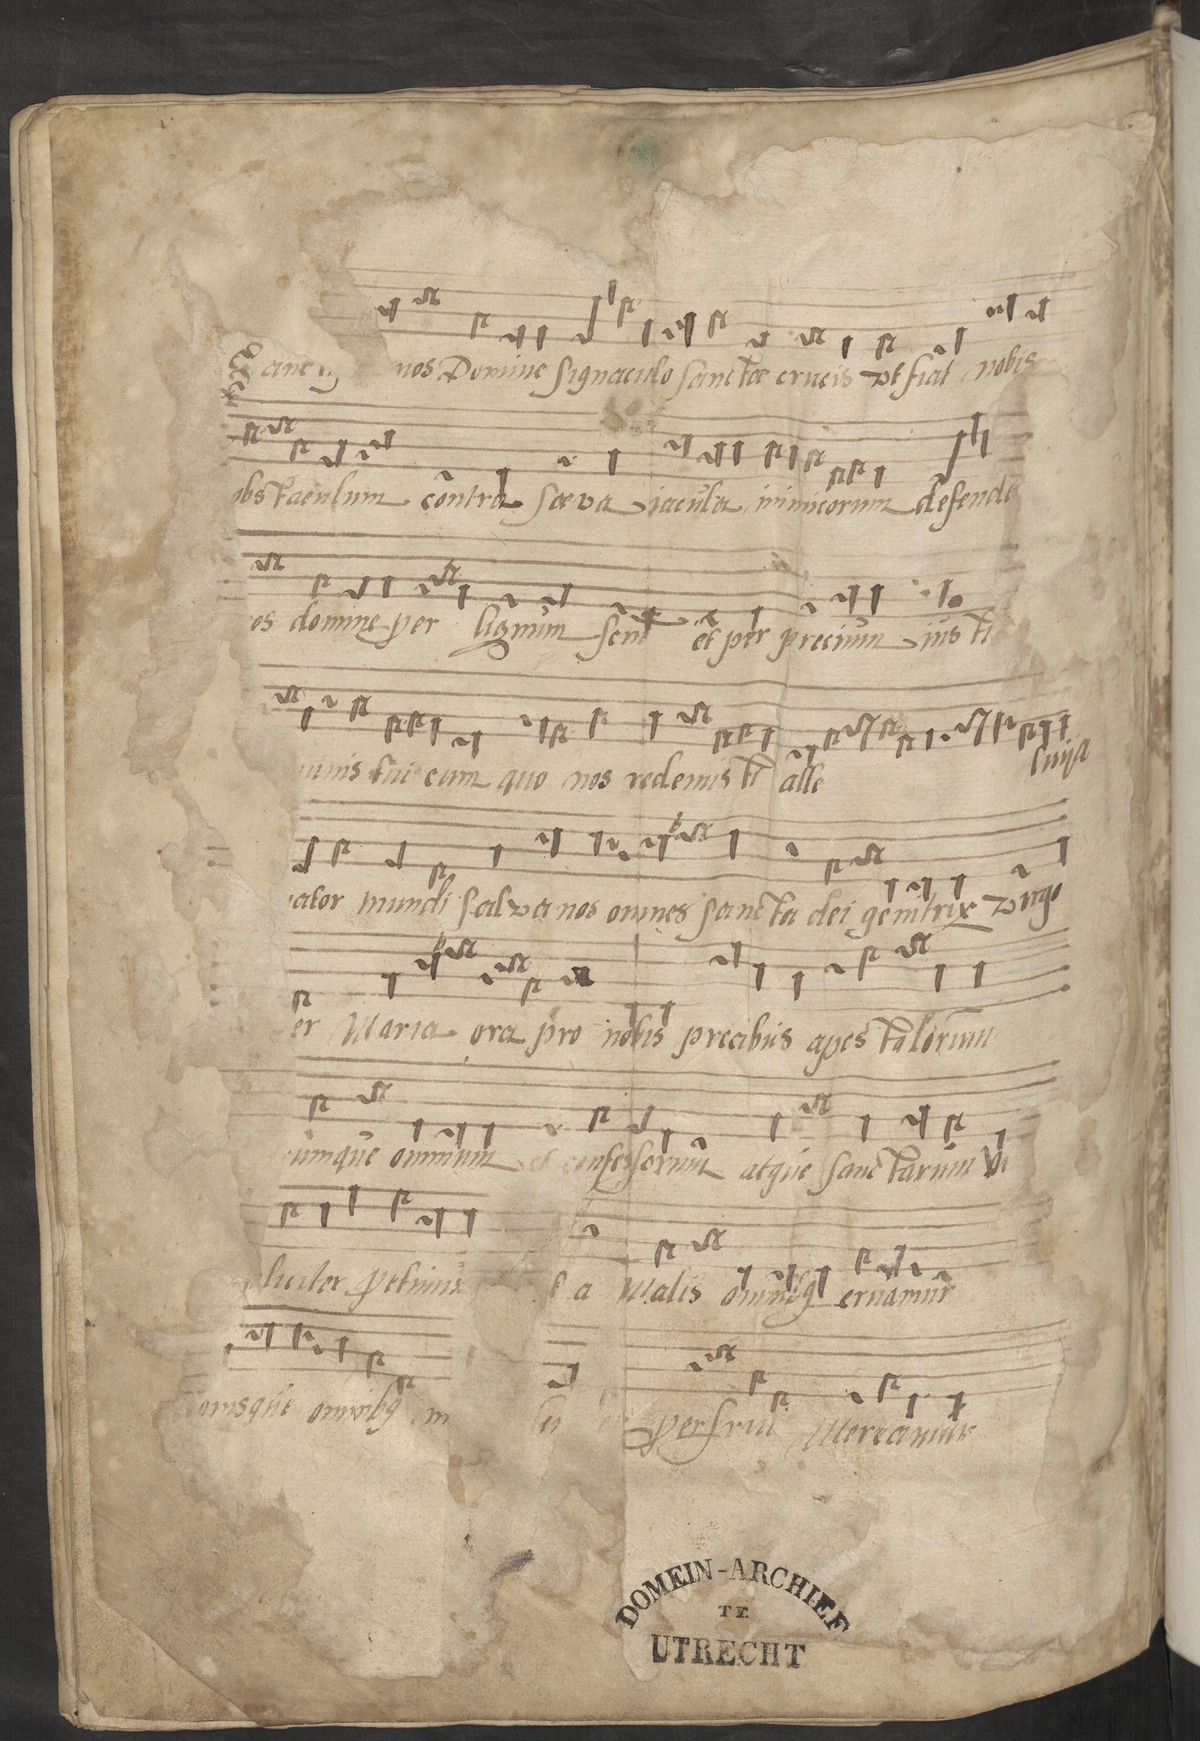 nos Domine signaculo sanctæ crucis vt fiat nobis
obstaculum contra sæva iacula inimicorum defende
os domine per lignum et per precium iusti
inis tui cum quo nos redemisti alle luija
ator mundi salva nos omnes sancta dei genitrix virgo
er Maria ora pro nobis precibus apostolorum
rumque omnium et confessorum atque sanctarum vi
liciter petimus t a malis omnibq eruamur
onisque omnibq perfrui mereamur
DOMEIN-ARCHIEF
TE
UTRECHT